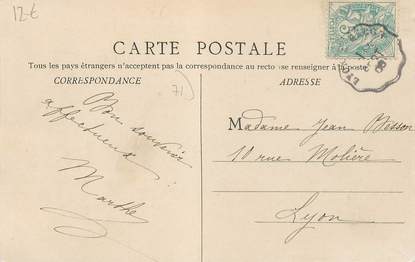 12 €
CARTE POSTALE
Tous les pays étrangers n'acceptent pas la correspondance au recto se renseigner à la poste
CORRESPONDANCE
ADRESSE
71
Bon souvenir
affectueux
Marthe
Madame Jean Besson
10 rue Molière
Lyon